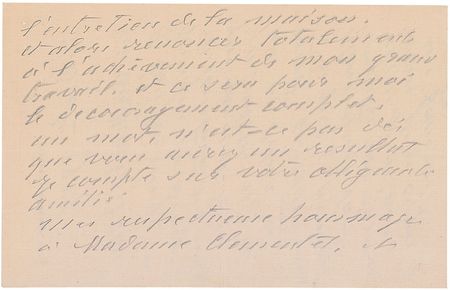 l'entretien de la maison.
et alors renoncer totalement
à l'achèvement de mon grand
travail. et ce sera pour moi
le découragement complet.
un mot, n'est-ce pas dès
que vous aurez un résultat
je compte sur votre obligeante
amitié
mes respectueux hommages
à Madame Clementel.